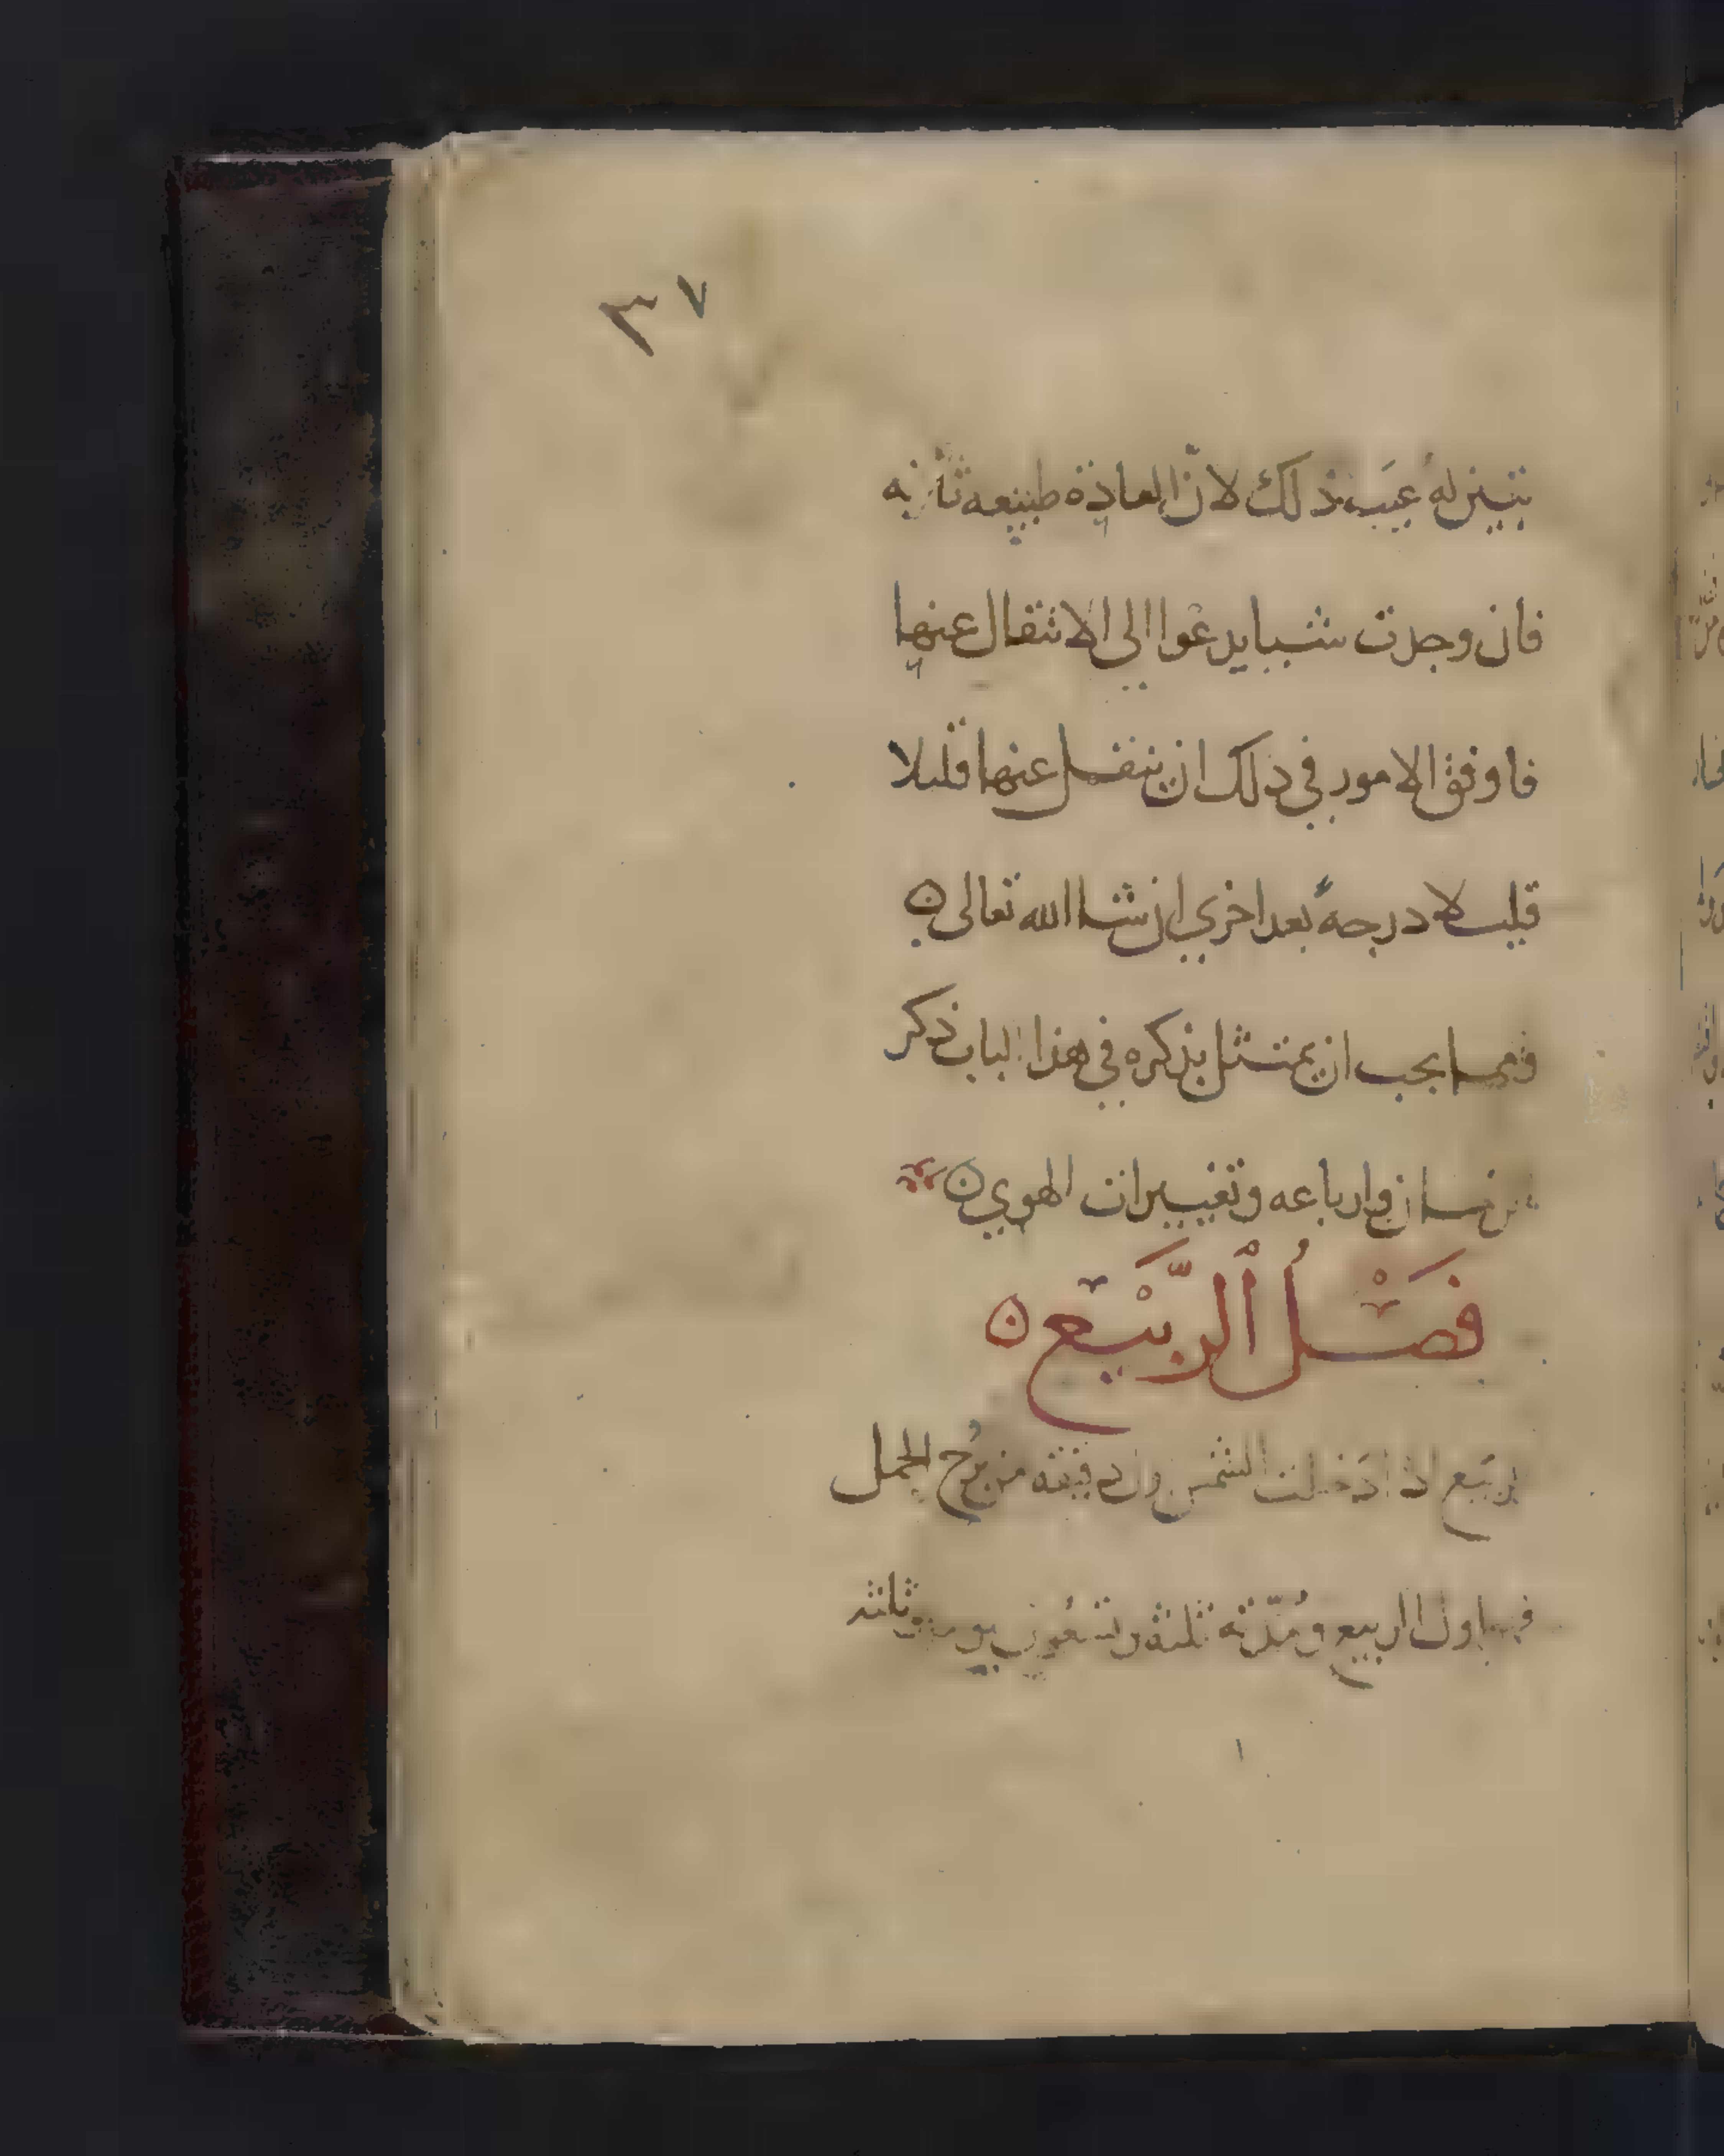 ٣٧
يتبين له عيب ذلك لان العادة طبيعه ثانيه
فان وجدت سببا يدعوا الى الانتقال عنها
فاوفق الامور في ذلك ان ينتقل عنها قليلا
قليلا درجه بعد اخري ان شا الله تعالى
ومما يجب ان يمتثل بذكره في هذا الباب ذكر
وارباعه وتغييرات الهوي
فَصْلُ الرَّبيع
الربيع اذا دخلت الشمس اول دقيقه من برج الحمل
اول الربيع ومُدّته ثلثه وتسعون يوما